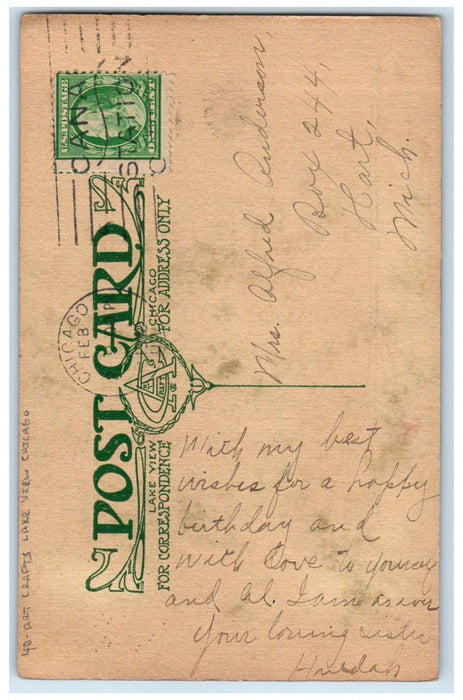 POST CARD
LAKE VIEW CHICAGO
FOR CORRESPONDENCE FOR ADDRESS ONLY
CHICAGO
FEB
U.S. POSTAGE
Mrs. Alfred Anderson,
Box 244,
Hart,
Mich.
With my best
wishes for a happy
birthday and
with love to yourself
and Al. I am as ever
your loving sister
Huldah
40-ART CRAFTS LAKE VIEW CHICAGO